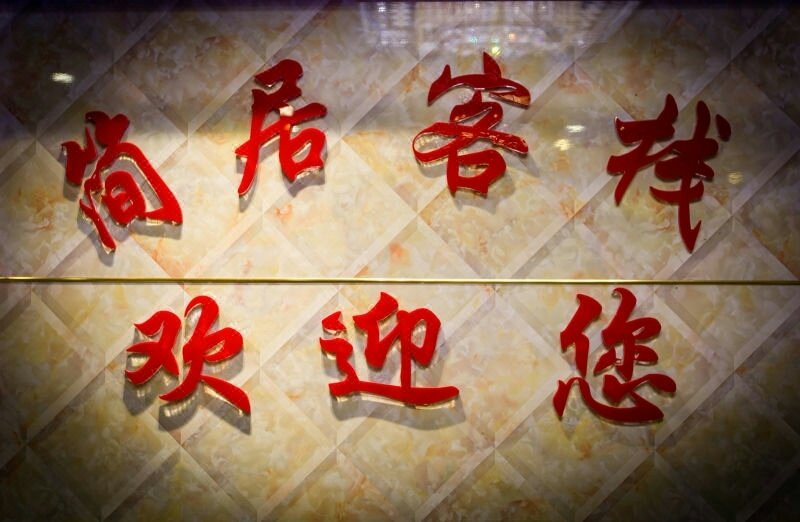 简居客栈
欢迎您